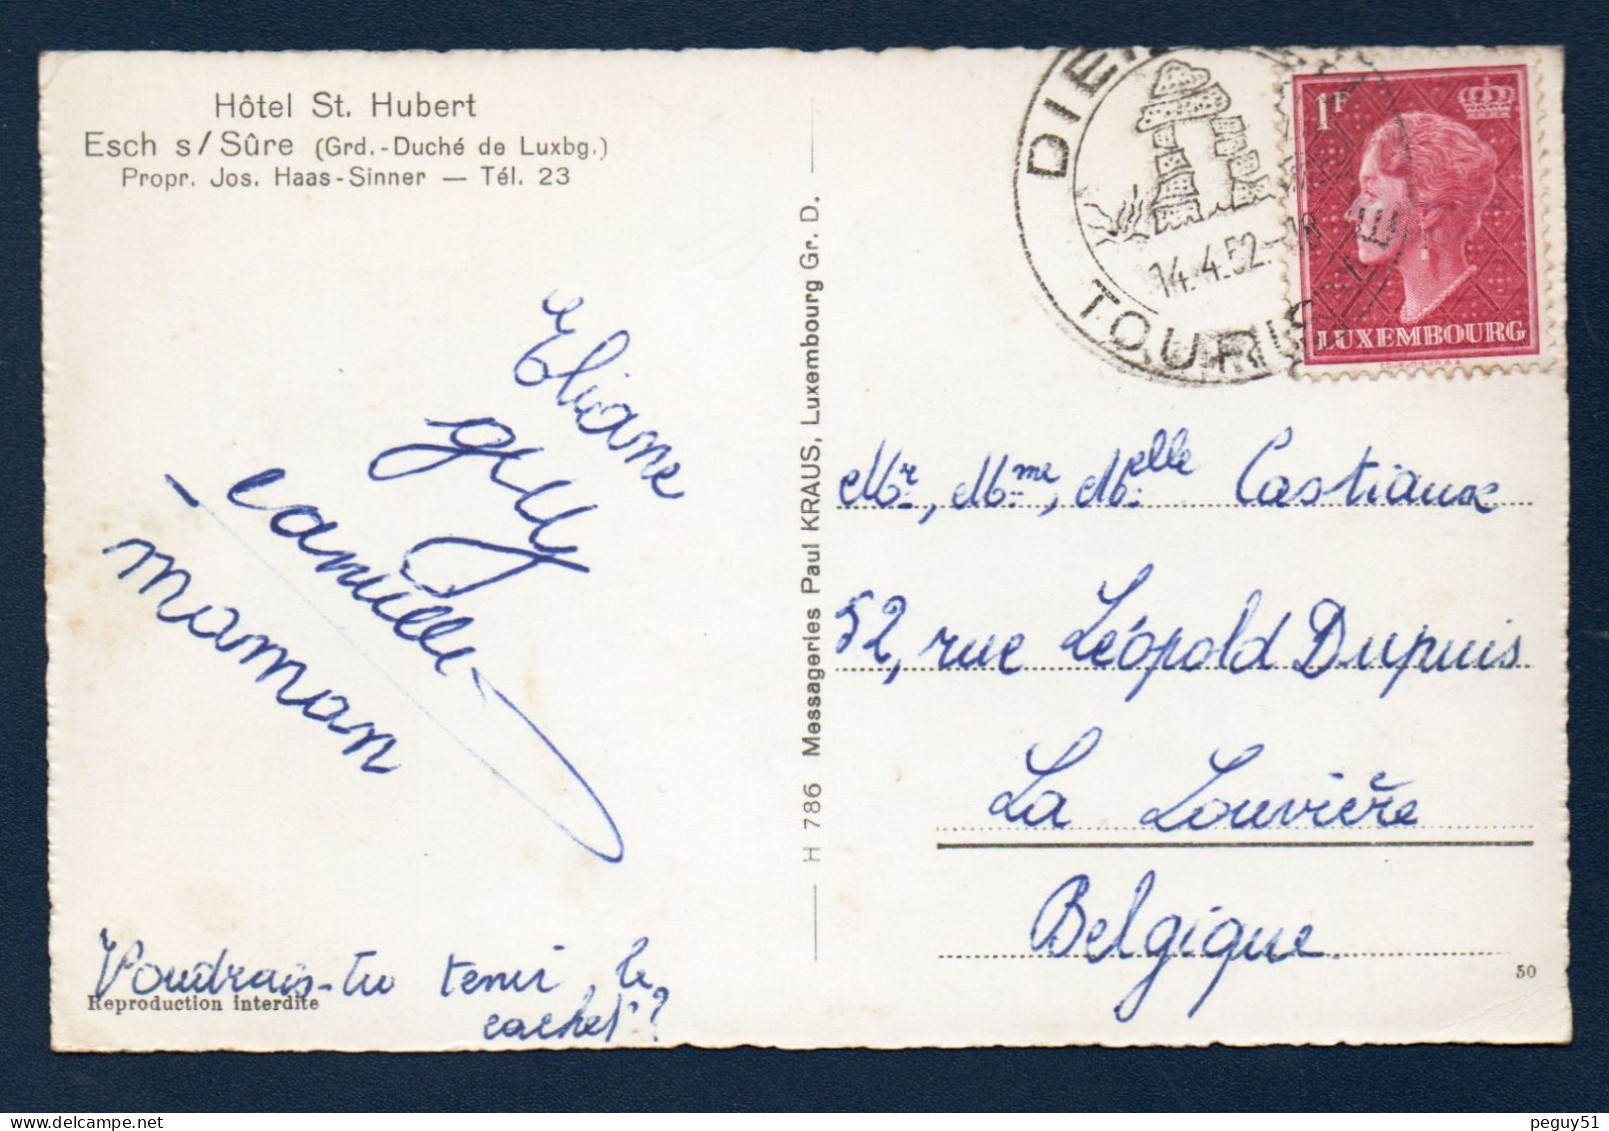 Hôtel St. Hubert
Esch s/Sûre (Grd.-Duché de Luxbg.)
Propr. Jos. Haas-Sinner — Tél. 23
Eliane
guy
camille
maman
Voudrais-tu tenir le
cachet?
Reproduction interdite
H 786 Messageries Paul KRAUS, Luxembourg Gr. D.
14.4.52.-18
TOURIS
1F
LUXEMBOURG
Mr, Mme, Melle Castiaux
52, rue Léopold Dupuis
La Louvière
Belgique
50
peguy51